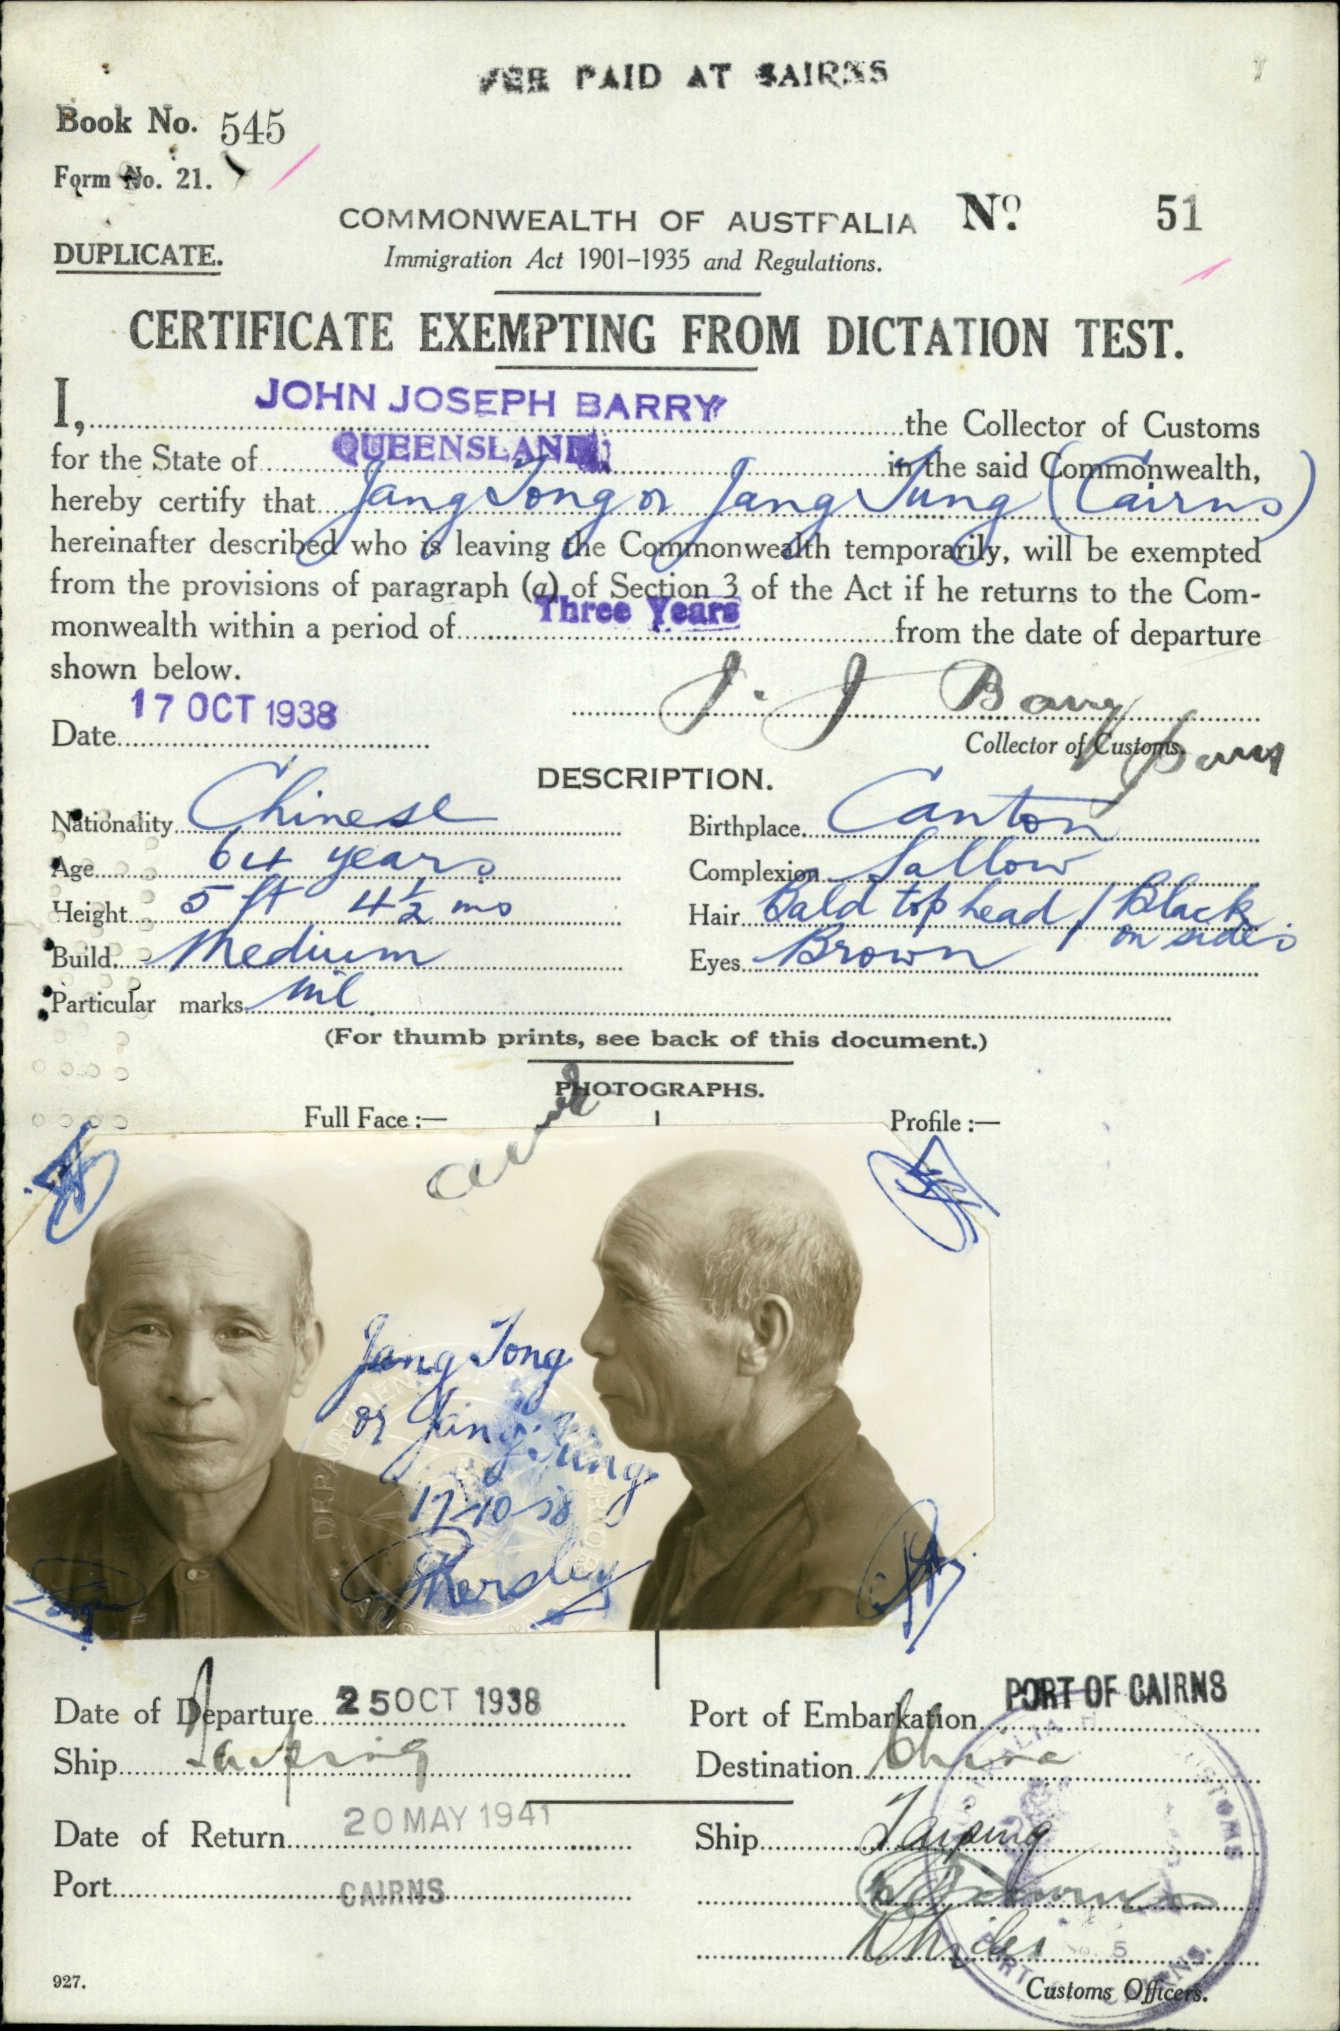 FEE PAID AT CAIRNS
Book No. 545
Form No. 21.
COMMONWEALTH OF AUSTRALIA No. 51
DUPLICATE.
Immigration Act 1901–1935 and Regulations.
CERTIFICATE EXEMPTING FROM DICTATION TEST.
I, JOHN JOSEPH BARRY the Collector of Customs
for the State of QUEENSLAND in the said Commonwealth,
hereby certify that Jang Tong or Jang Tung (Cairns)
hereinafter described who is leaving the Commonwealth temporarily, will be exempted
from the provisions of paragraph (a) of Section 3 of the Act if he returns to the Com-
monwealth within a period of Three Years from the date of departure
shown below.
J. J. Barry
Date 17 OCT 1938
Collector of Customs.
Barry
DESCRIPTION.
Nationality Chinese Birthplace Canton
Age 64 years Complexion Sallow
Height 5 ft 4½ ins Hair Bald top head / Black on sides
Build Medium Eyes Brown
Particular marks nil
(For thumb prints, see back of this document.)
PHOTOGRAPHS.
Full Face :— Profile :—
Jang Tong
or Jang Tung
17-10-38
Date of Departure 25 OCT 1938 Port of Embarkation PORT OF CAIRNS
Ship Taiping Destination China
Date of Return 20 MAY 1941 Ship Taiping
Port CAIRNS
Customs Officers.
927.